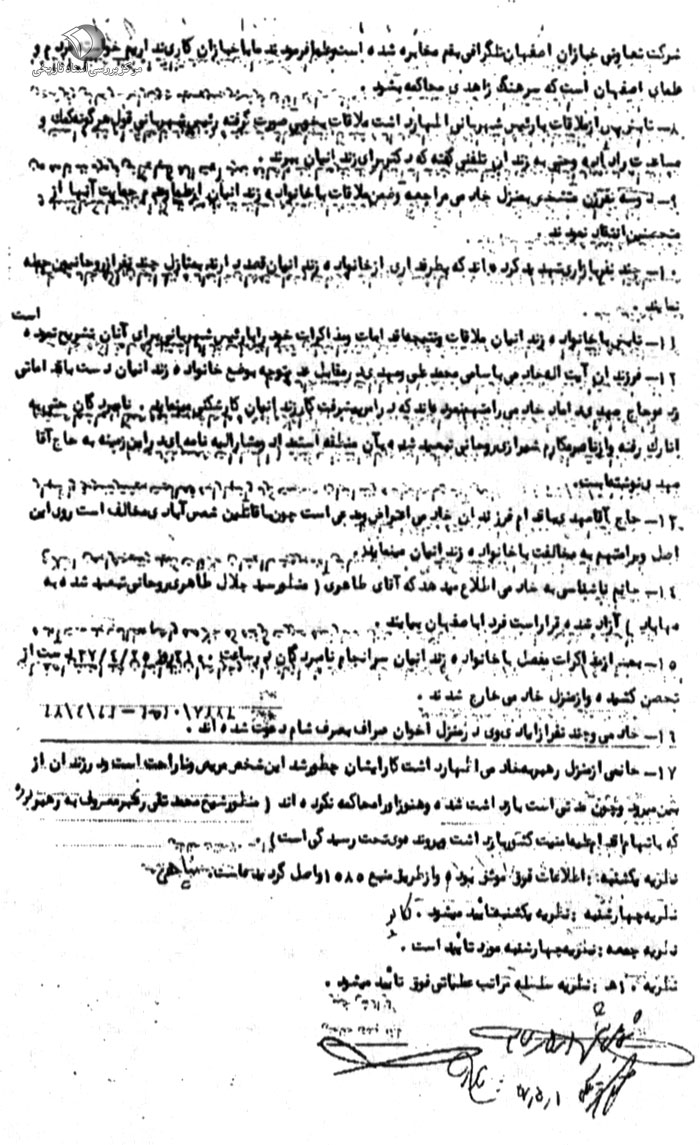 مرکز بررسی اسناد تاریخی
شرکت تعاونی خبازان اصفهان تلگرافی بقم مخابره شده است و علما فرمودند ما با خبازان کاری نداریم خواست مردم و
علمای اصفهان است که سرهنگ زاهدی محاکمه بشود .
۸ـ نائینی پس از ملاقات با رئیس شهربانی اظهار داشت ملاقات بخوبی صورت گرفته رئیس شهربانی قول هرگونه کمک و
مساعدت را داده و حتی به زندان تلفنی گفته که دکتر برای زندانیان ببرند .
۹ـ دو سه نفر زن متشخص بمنزل خادمی مراجعه و ضمن ملاقات با خانواده زندانیان از علما و عدم حمایت آنها از
متحصنین انتقاد نمودند .
۱۰ـ چند نفر بازاری تهدید کرده اند که بطرفداری از خانواده زندانیان قصد دارند بمنازل چند نفر از روحانیون حمله
نمایند .
۱۱ـ نائینی با خانواده زندانیان ملاقات و نتیجه اقدامات و مذاکرات خود را با رئیس شهربانی برای آنان تشریح نموده است
۱۲ـ فرزندان آیت اله خادمی باسامی محمد علی و مهدی در مقابل عدم توجه بوضع خانواده زندانیان دست باقداماتی
زده و حاج مهدی داماد خادمی را متهم نموده اند که در امر پیشرفت کار زندانیان کارشکنی مینماید . نامبردگان حتی به
انارک رفته و از ناصر مکارم شیرازی روحانی تبعید شده بآن منطقه استمداد و مشارالیه نامه ای در این زمینه به حاج آقا
مهدی نوشته است.
۱۳ـ حاج آقا مهدی باقدام فرزندان خادمی اعتراض و مدعی است چون با قاتلین شمس آبادی مخالف است روی این
اصل ویرا متهم به مخالفت با خانواده زندانیان مینمایند .
۱۴ـ خانم ناشناسی به خادمی اطلاع میدهد که آقای طاهری ( منظور سید جلال طاهری روحانی تبعید شده به
مهاباد ) آزاد شده قرار است فردا باصفهان بیایند .
۱۵ـ بعد از مذاکرات مفصل با خانواده زندانیان سرانجام نامبردگان در ساعت روز دست از
تحصن کشیده و از منزل خادمی خارج شدند .
۱۶ـ خادمی و چند نفر از ایادی وی در منزل اخوان صراف بصرف شام دعوت شده اند .
۱۷ـ خانمی از منزل رهبر به خادمی اظهار داشت کار ایشان چطور شد این شخص مریض و ناراحت است و در زندان از
بین میرود و چون مدتی است بازداشت شده و هنوز او را محاکمه نکرده اند ( منظور شیخ محمد تقی رهبر معروف به رهبر بروه
که باتهام اقدام علیه امنیت کشور بازداشت و پرونده وی تحت رسیدگی است ) .
نظریه یکشنبه : اطلاعات فوق موثق بوده و از طریق منبع ۱۵۸۵ واصل گردیده است.
نظریه چهارشنبه : نظریه یکشنبه تائید میشود .
نظریه جمعه : نظریه چهارشنبه مورد تائید است .
نظریه ۱۰ ه : نظریه سلسله مراتب عملیاتی فوق تائید میشود .